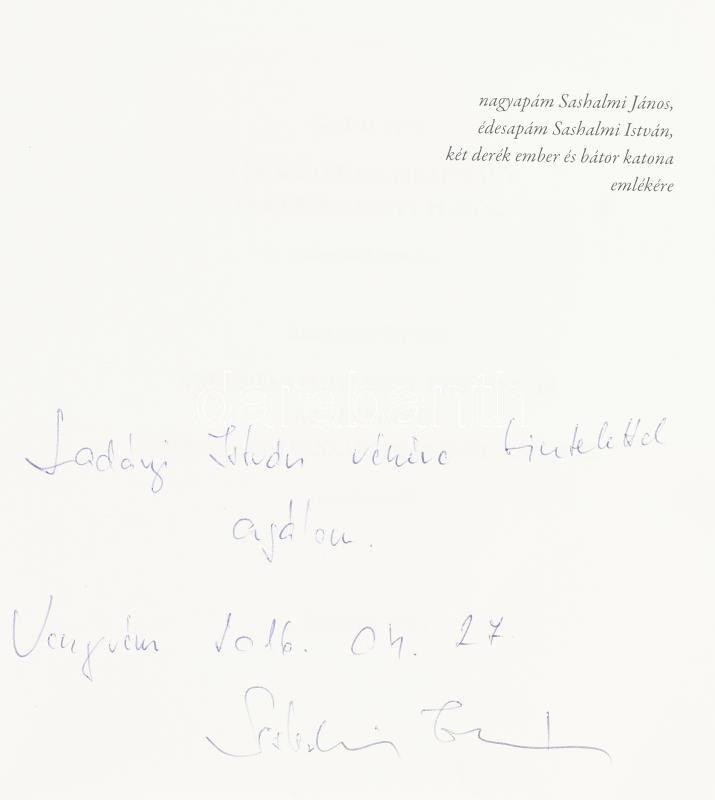 nagyapám Sashalmi János,
édesapám Sashalmi István,
két derék ember és bátor katona
emlékére
darabanth
Ladányi István részére tisztelettel
ajálom.
2016. 04. 27